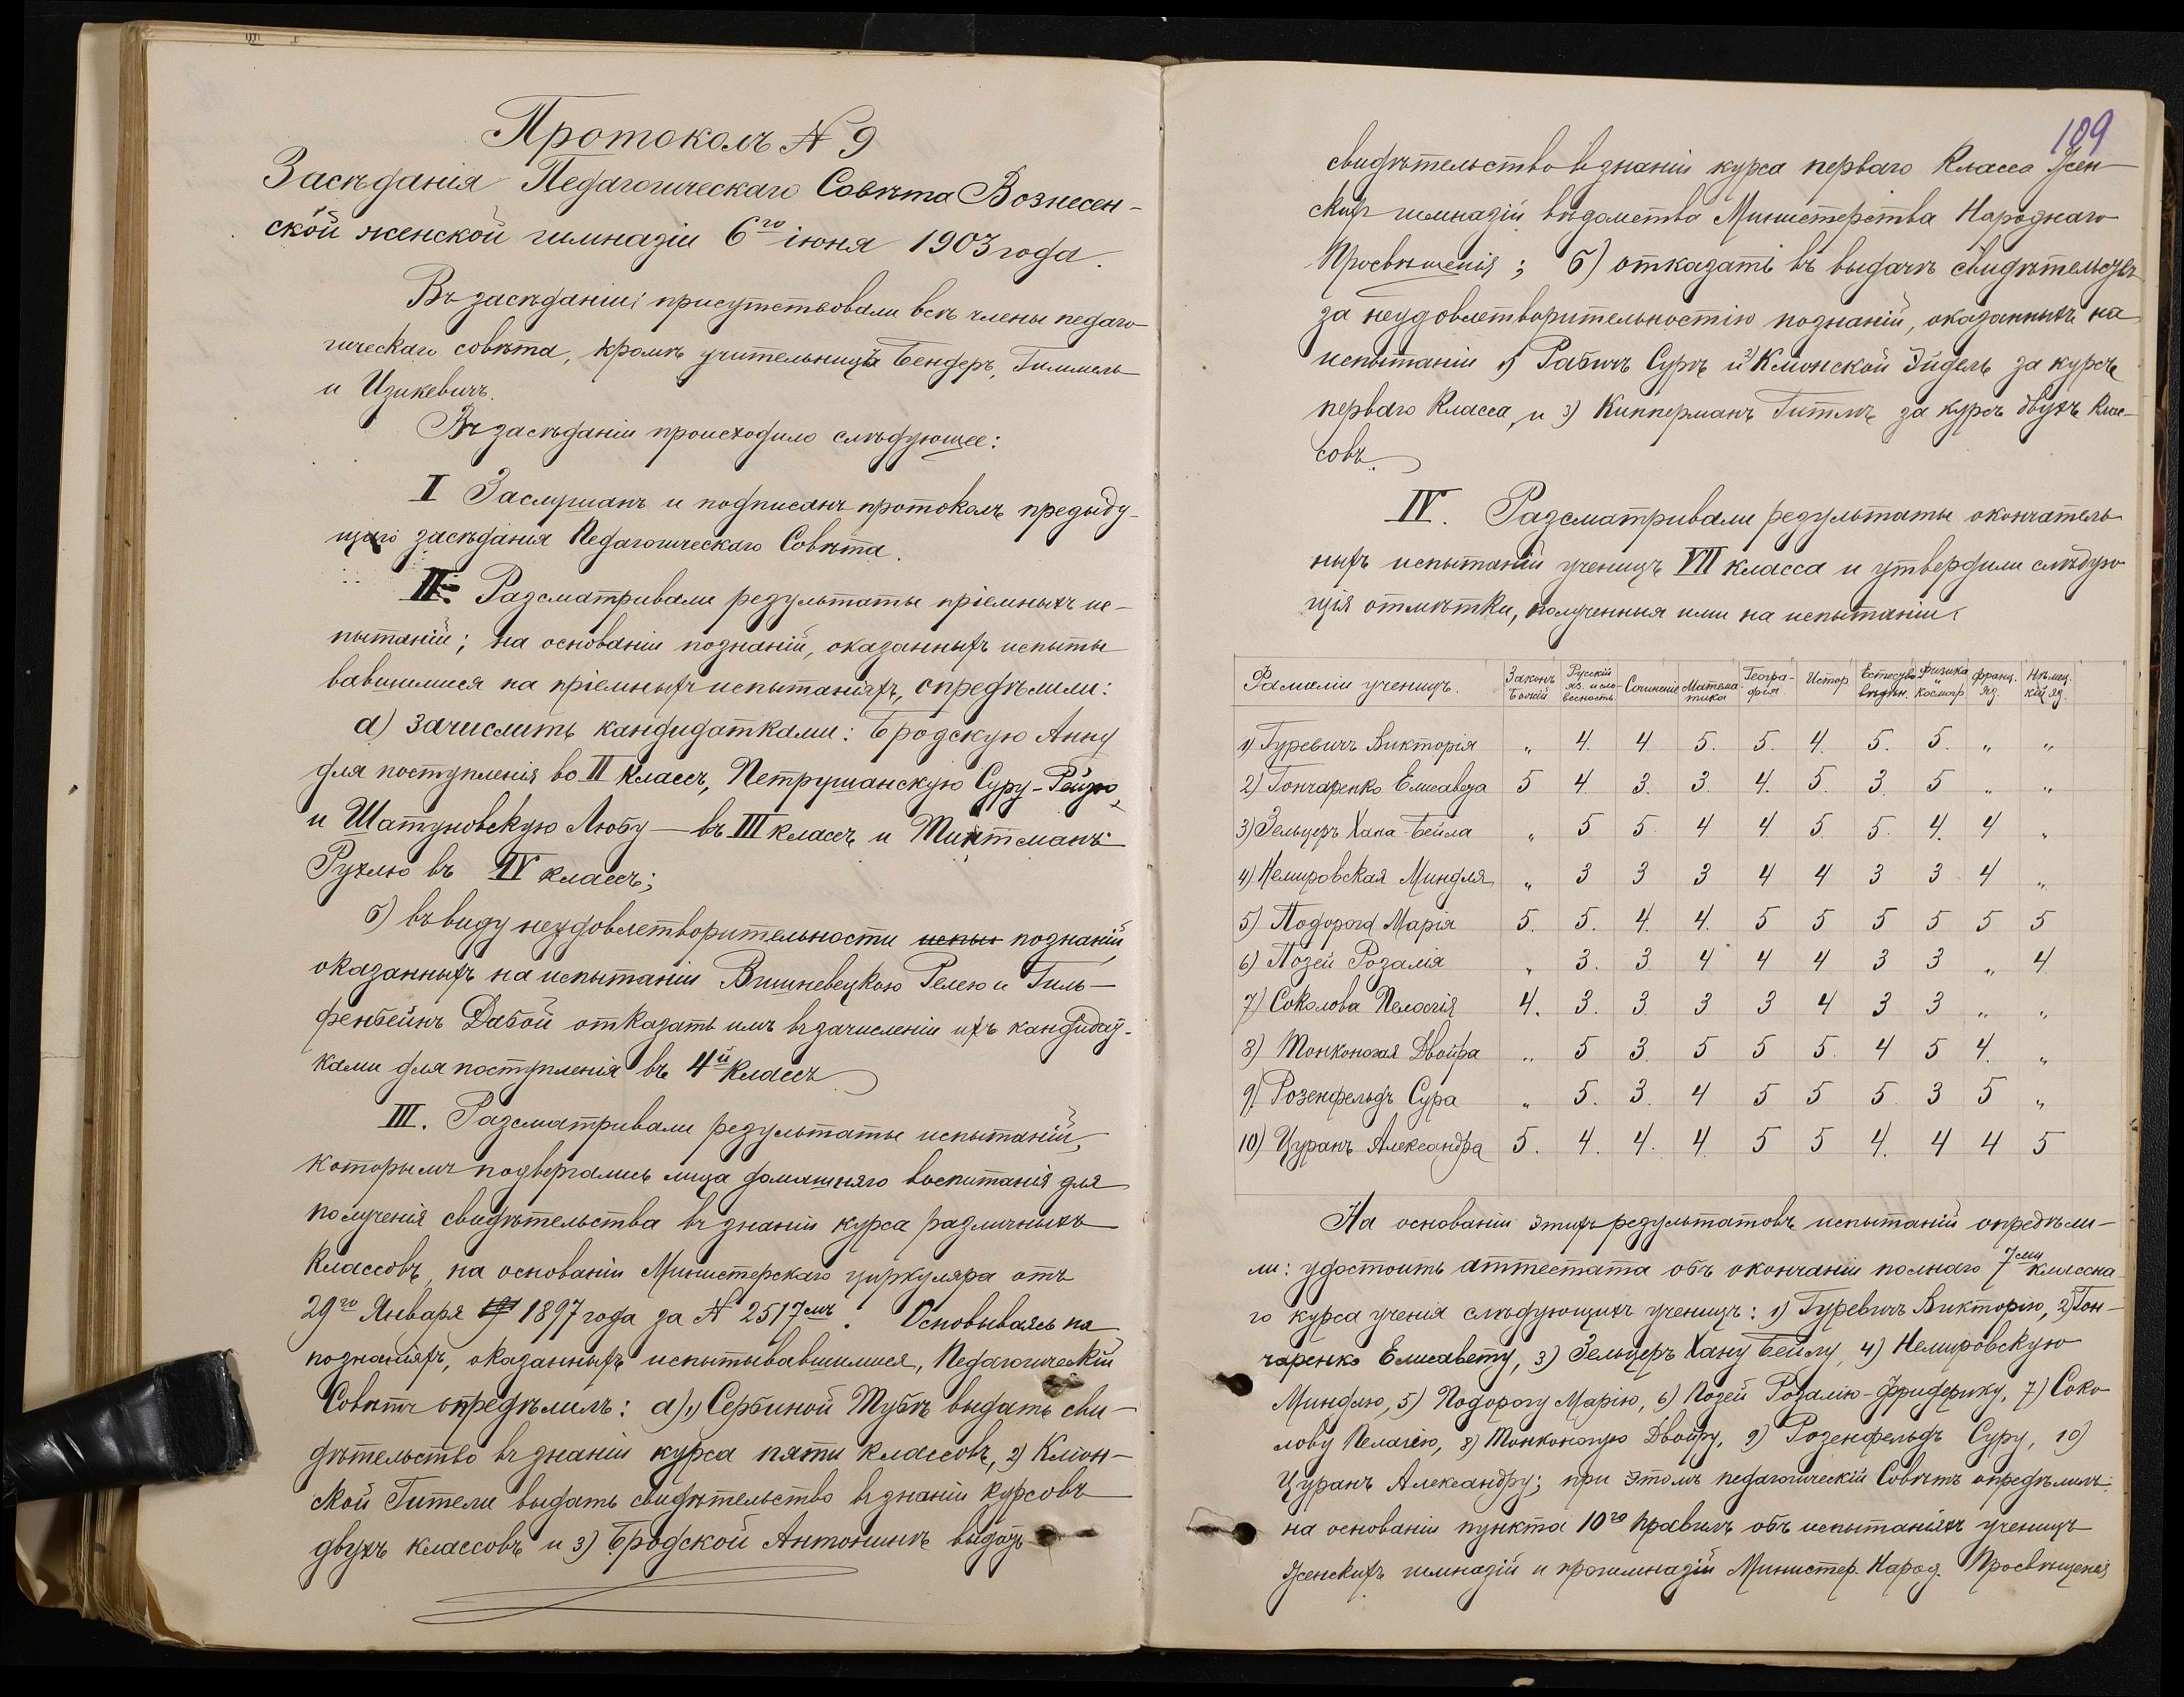 Протоколъ № 9
Засѣданія Педагогическаго Совѣта Вознесен-
ской женской гимназіи 6го іюня 1903 года.
Въ засѣданіи присутствовали всѣ члены педаго-
гическаго совѣта, кромѣ учительницъ Бендеръ, Гиммель
и Изикевичъ.
Въ засѣданіи происходило слѣдующее:
I Заслушанъ и подписанъ протоколъ предыду-
щаго засѣданія Педагогическаго Совѣта.
II. Разсматривали результаты пріемныхъ ис-
пытаній; на основаніи познаній, оказанныхъ испыты
вавшимися на пріемныхъ испытаніяхъ, опредѣлили:
а) зачислить кандидатками: Бродскую Анну
для поступленія во II классъ, Петрушанскую Суру-Рейзю
и Шатуновскую Любу — въ III классъ и Тиктманъ
Рухлю въ IV классъ;
б) въ виду неудовлетворительности испы познаній,
оказанныхъ на испытаніи Вишневецкою Гелею и Гиль-
фенбейнъ Дабой отказать имъ въ зачисленіи ихъ кандидат-
ками для поступленія въ 4й классъ
III. Разсматривали результаты испытаній,
которымъ подвергались лица домашняго воспитанія для
полученія свидѣтельства въ знаніи курса различныхъ
классовъ, на основаніи Министерскаго циркуляра отъ
29го Января 1897 года за № 2517мъ. Основываясь на
познаніяхъ, оказанныхъ испытывавшимися, Педагогическій
Совѣтъ опредѣлилъ: а) 1) Сербиной Тубѣ выдать сви-
дѣтельство въ знаніи курса пяти классовъ, 2) Клiон-
ской Гители выдать свидѣтельство въ знаніи курсовъ
двухъ классовъ и 3) Бродской Антонинѣ выдать
109
свидѣтельство въ знаніи курса перваго класса жен-
скихъ гимназій вѣдомства Министерства Народнаго
Просвѣщенія; б) отказать въ выдачѣ свидѣтельствъ
за неудовлетворительностію познаній, оказанныхъ на
испытаніи 1) Рабичъ Сурѣ и 2) Клiонской Эйдель за курсъ
перваго класса, и 3) Кипперманъ Гитлѣ за курсъ двухъ клас-
совъ.
IV. Разсматривали результаты окончатель
ныхъ испытаній ученицъ VII класса и утвердили слѣдую
щія отмѣтки, полученныя ими на испытаніи:
Фамиліи ученицъ. Законъ Божій Русскій яз. и сло- весность. Сочиненіе Матема- тика Геогра- фія. Истор. Естество- вѣдѣн. Физика и космогр. Франц. яз. Нѣмец- кій яз.
1) Гуревичъ Викторія „ 4. 4 5. 5. 4. 5. 5. „ „
2) Гончаренко Елисавета 5 4. 3. 3. 4. 5. 3. 5 „ „
3) Зельцеръ Хана-Бейла „ 5 5. 4 4 5. 5. 4. 4 „
4) Немировская Миндля „ 3 3 3 4 4 3 3 4 „
5) Подорога Марія 5. 5. 4. 4. 5 5 5 5 5 5
6) Позей Розалія „ 3. 3 4 4 4 3 3 „ 4
7) Соколова Пелагія 4. 3. 3. 3 3 4 3 3 „ „
8) Тонконогая Двойра „ 5 3. 5 5 5. 4 5 4. „
9) Розенфельдъ Сура „ 5. 3. 4 5 5 5. 3 5 „
10) Цуранъ Александра 5. 4. 4. 4 5 5 4. 4 4 5
На основаніи этихъ результатовъ испытаній опредѣли-
ли: удостоить аттестата объ окончаніи полнаго 7ми классна-
го курса ученія слѣдующихъ ученицъ: 1) Гуревичъ Викторію, 2) Гон-
чаренко Елисавету, 3) Зельцеръ Хану Бейлу, 4) Немировскую
Миндлю, 5) Подорогу Марію, 6) Позей Розалію-Фридерику, 7) Соко
лову Пелагію, 8) Тонконогую Двойру, 9) Розенфельдъ Суру, 10)
Цуранъ Александру; при этомъ педагогическій Совѣтъ опредѣлилъ:
на основаніи пункта 10го правилъ объ испытаніяхъ ученицъ
женскихъ гимназій и прогимназій Министер. Народ. Просвѣщенія